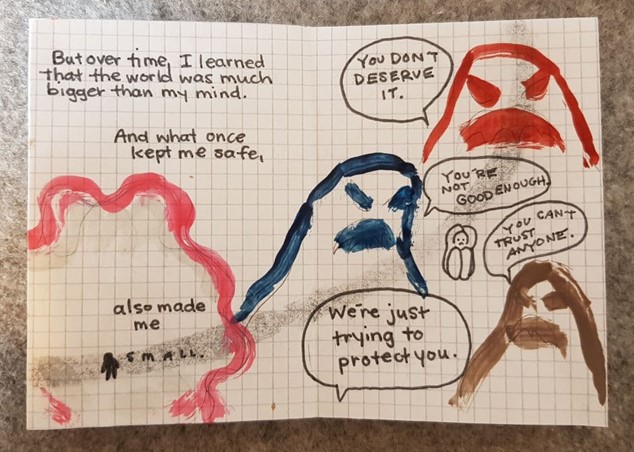 But over time, I learned
that the world was much
bigger than my mind.
And what once
kept me safe,
also made
me
SMALL.
YOU DON'T
DESERVE
IT.
YOU'RE
NOT
GOOD ENOUGH.
YOU CAN'T
TRUST
ANYONE.
We're just
trying to
protect you.